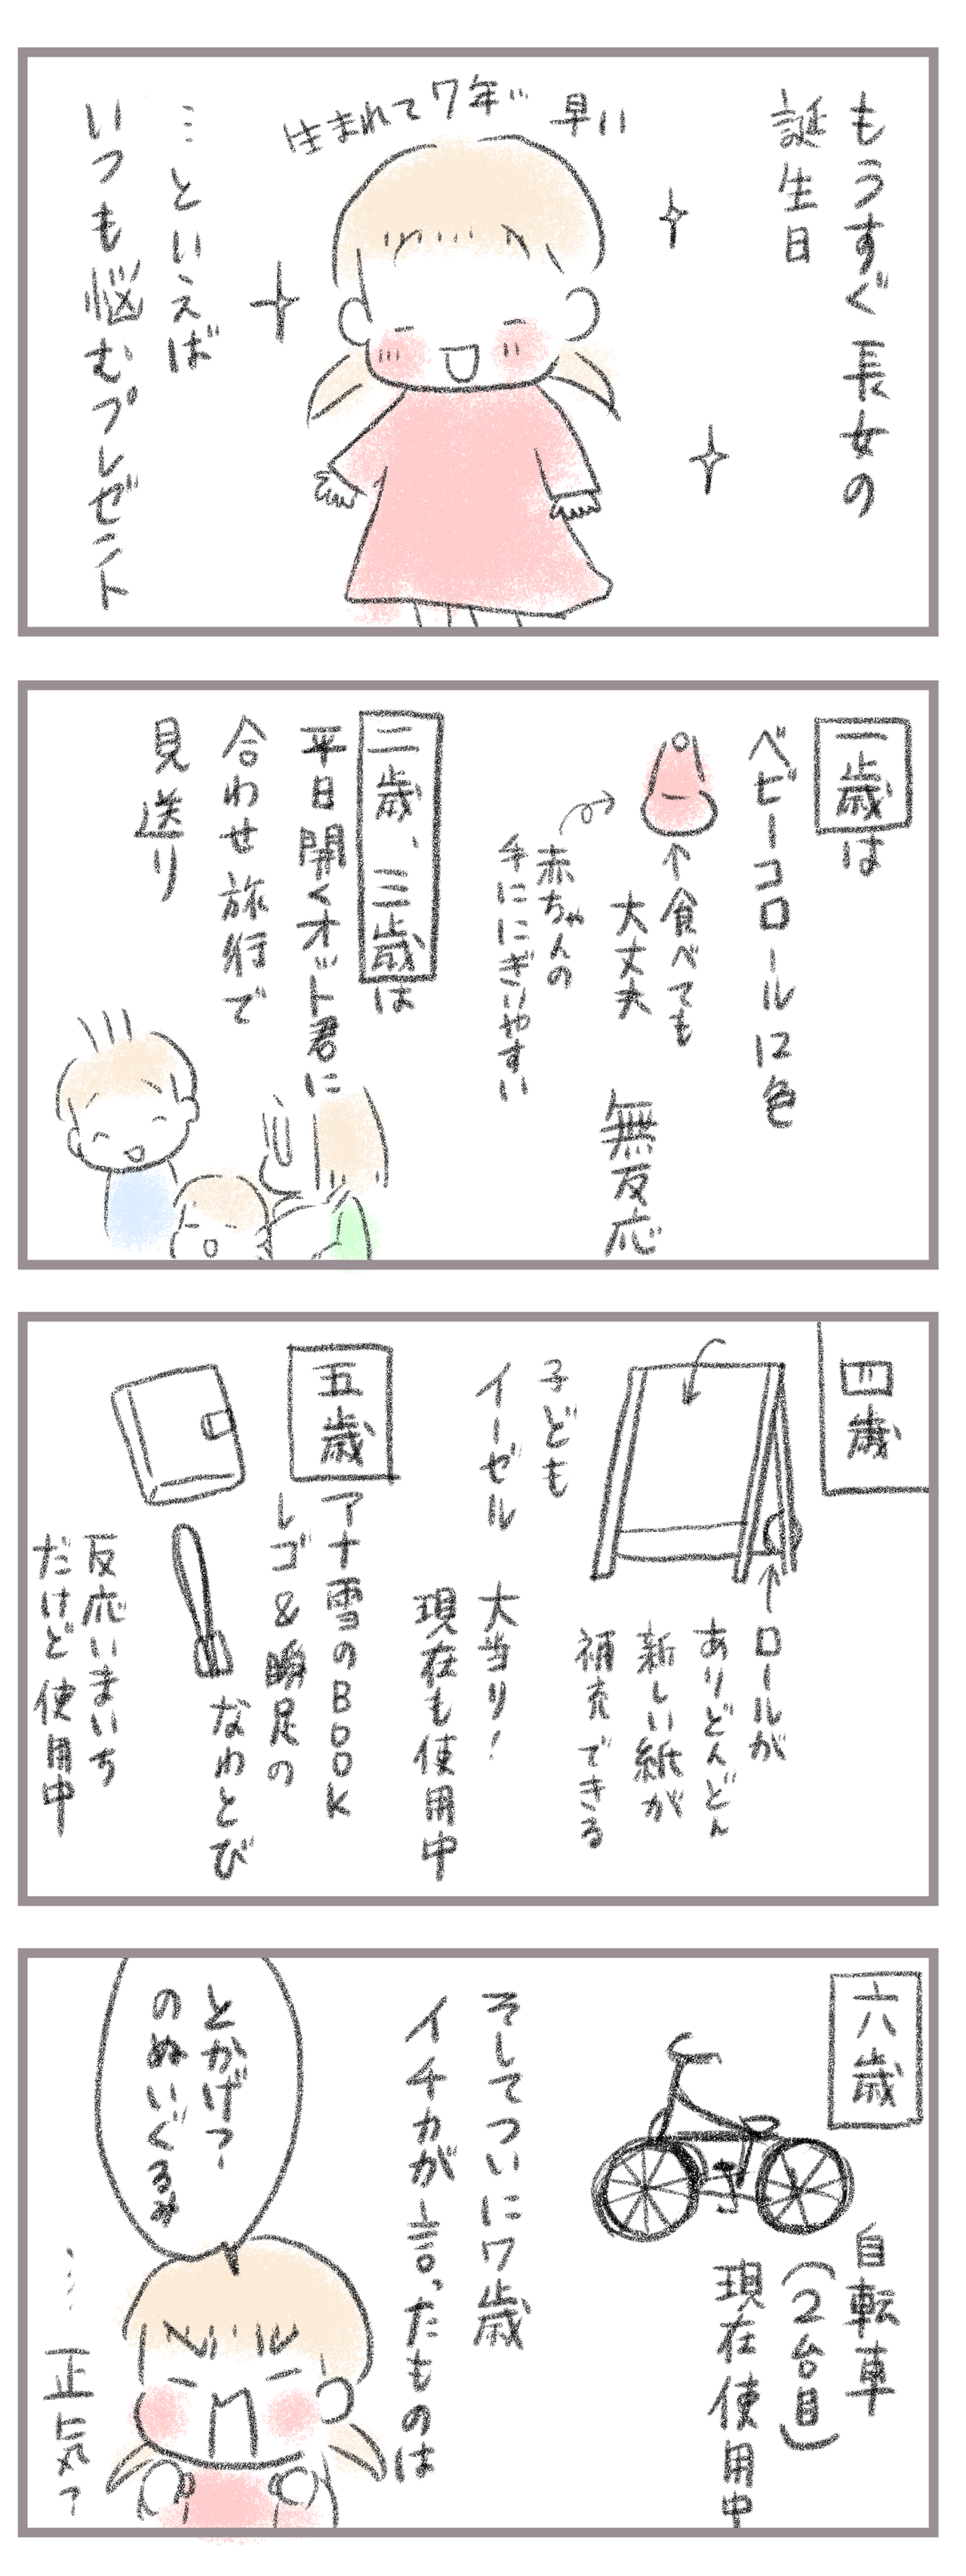 もうすぐ長女の
誕生日
早い
生まれて7年…
…といえば
いつも悩むプレゼント
一歳は
ベビーコロール12色
↑食べても
大丈夫
赤ちゃんの
手ににぎりやすい
無反応
二歳、三歳は
平日開くオット君に
合わせ旅行で
見送り
四歳
↑ロールが
ありどんどん
新しい紙が
補充できる
子ども
イーゼル
大当り！
現在も使用中
五歳
アナ雪のBOOK
レゴ&瞬足の
なわとび
反応いまいち
だけど使用中
六歳
自転車
(2台目)
現在使用中
そしてついに7歳
イチカが言ったものは
とかげっ
のぬいぐるみ
…正気？